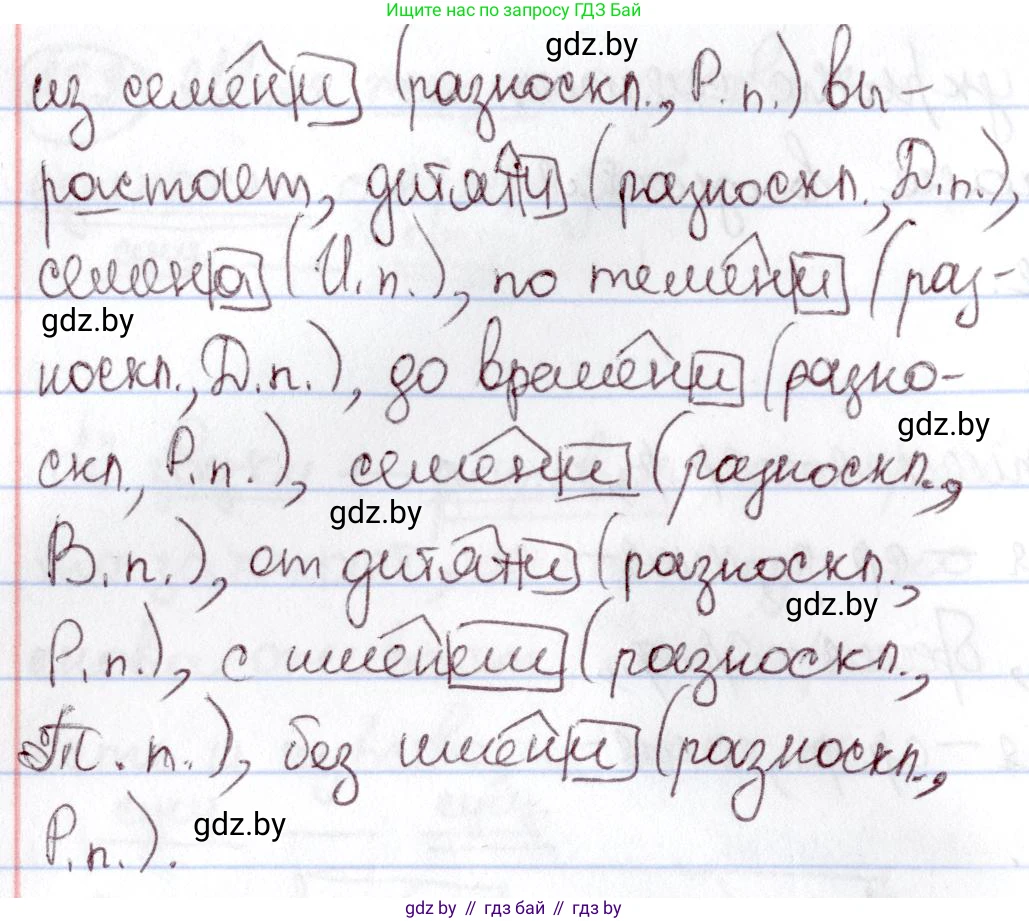 Ищите нас по запросу ГДЗ Бай
gdz.by
из семени (разноскл., Р.п.) вы-
растает, дитяти (разноскл., Д.п.),
семена (И.п.), по темени (раз-
gdz.by
носкл., Д.п.), до времени (разно-
gdz.by
скл., Р.п.), семени (разноскл.,
gdz.by
В.п.), от дитяти (разноскл.,
gdz.by
Р.п.), с именем (разноскл.,
Т.п.), без имени (разноскл.,
gdz.by
Р.п.).
gdz.by // гдз бай // gdz.by